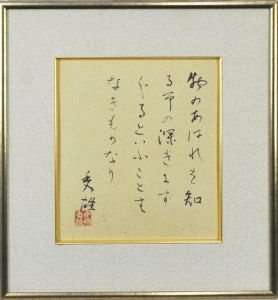 物のあはれを知
る事の深きにす
ぐるといふことも
なきものなり
秀雄